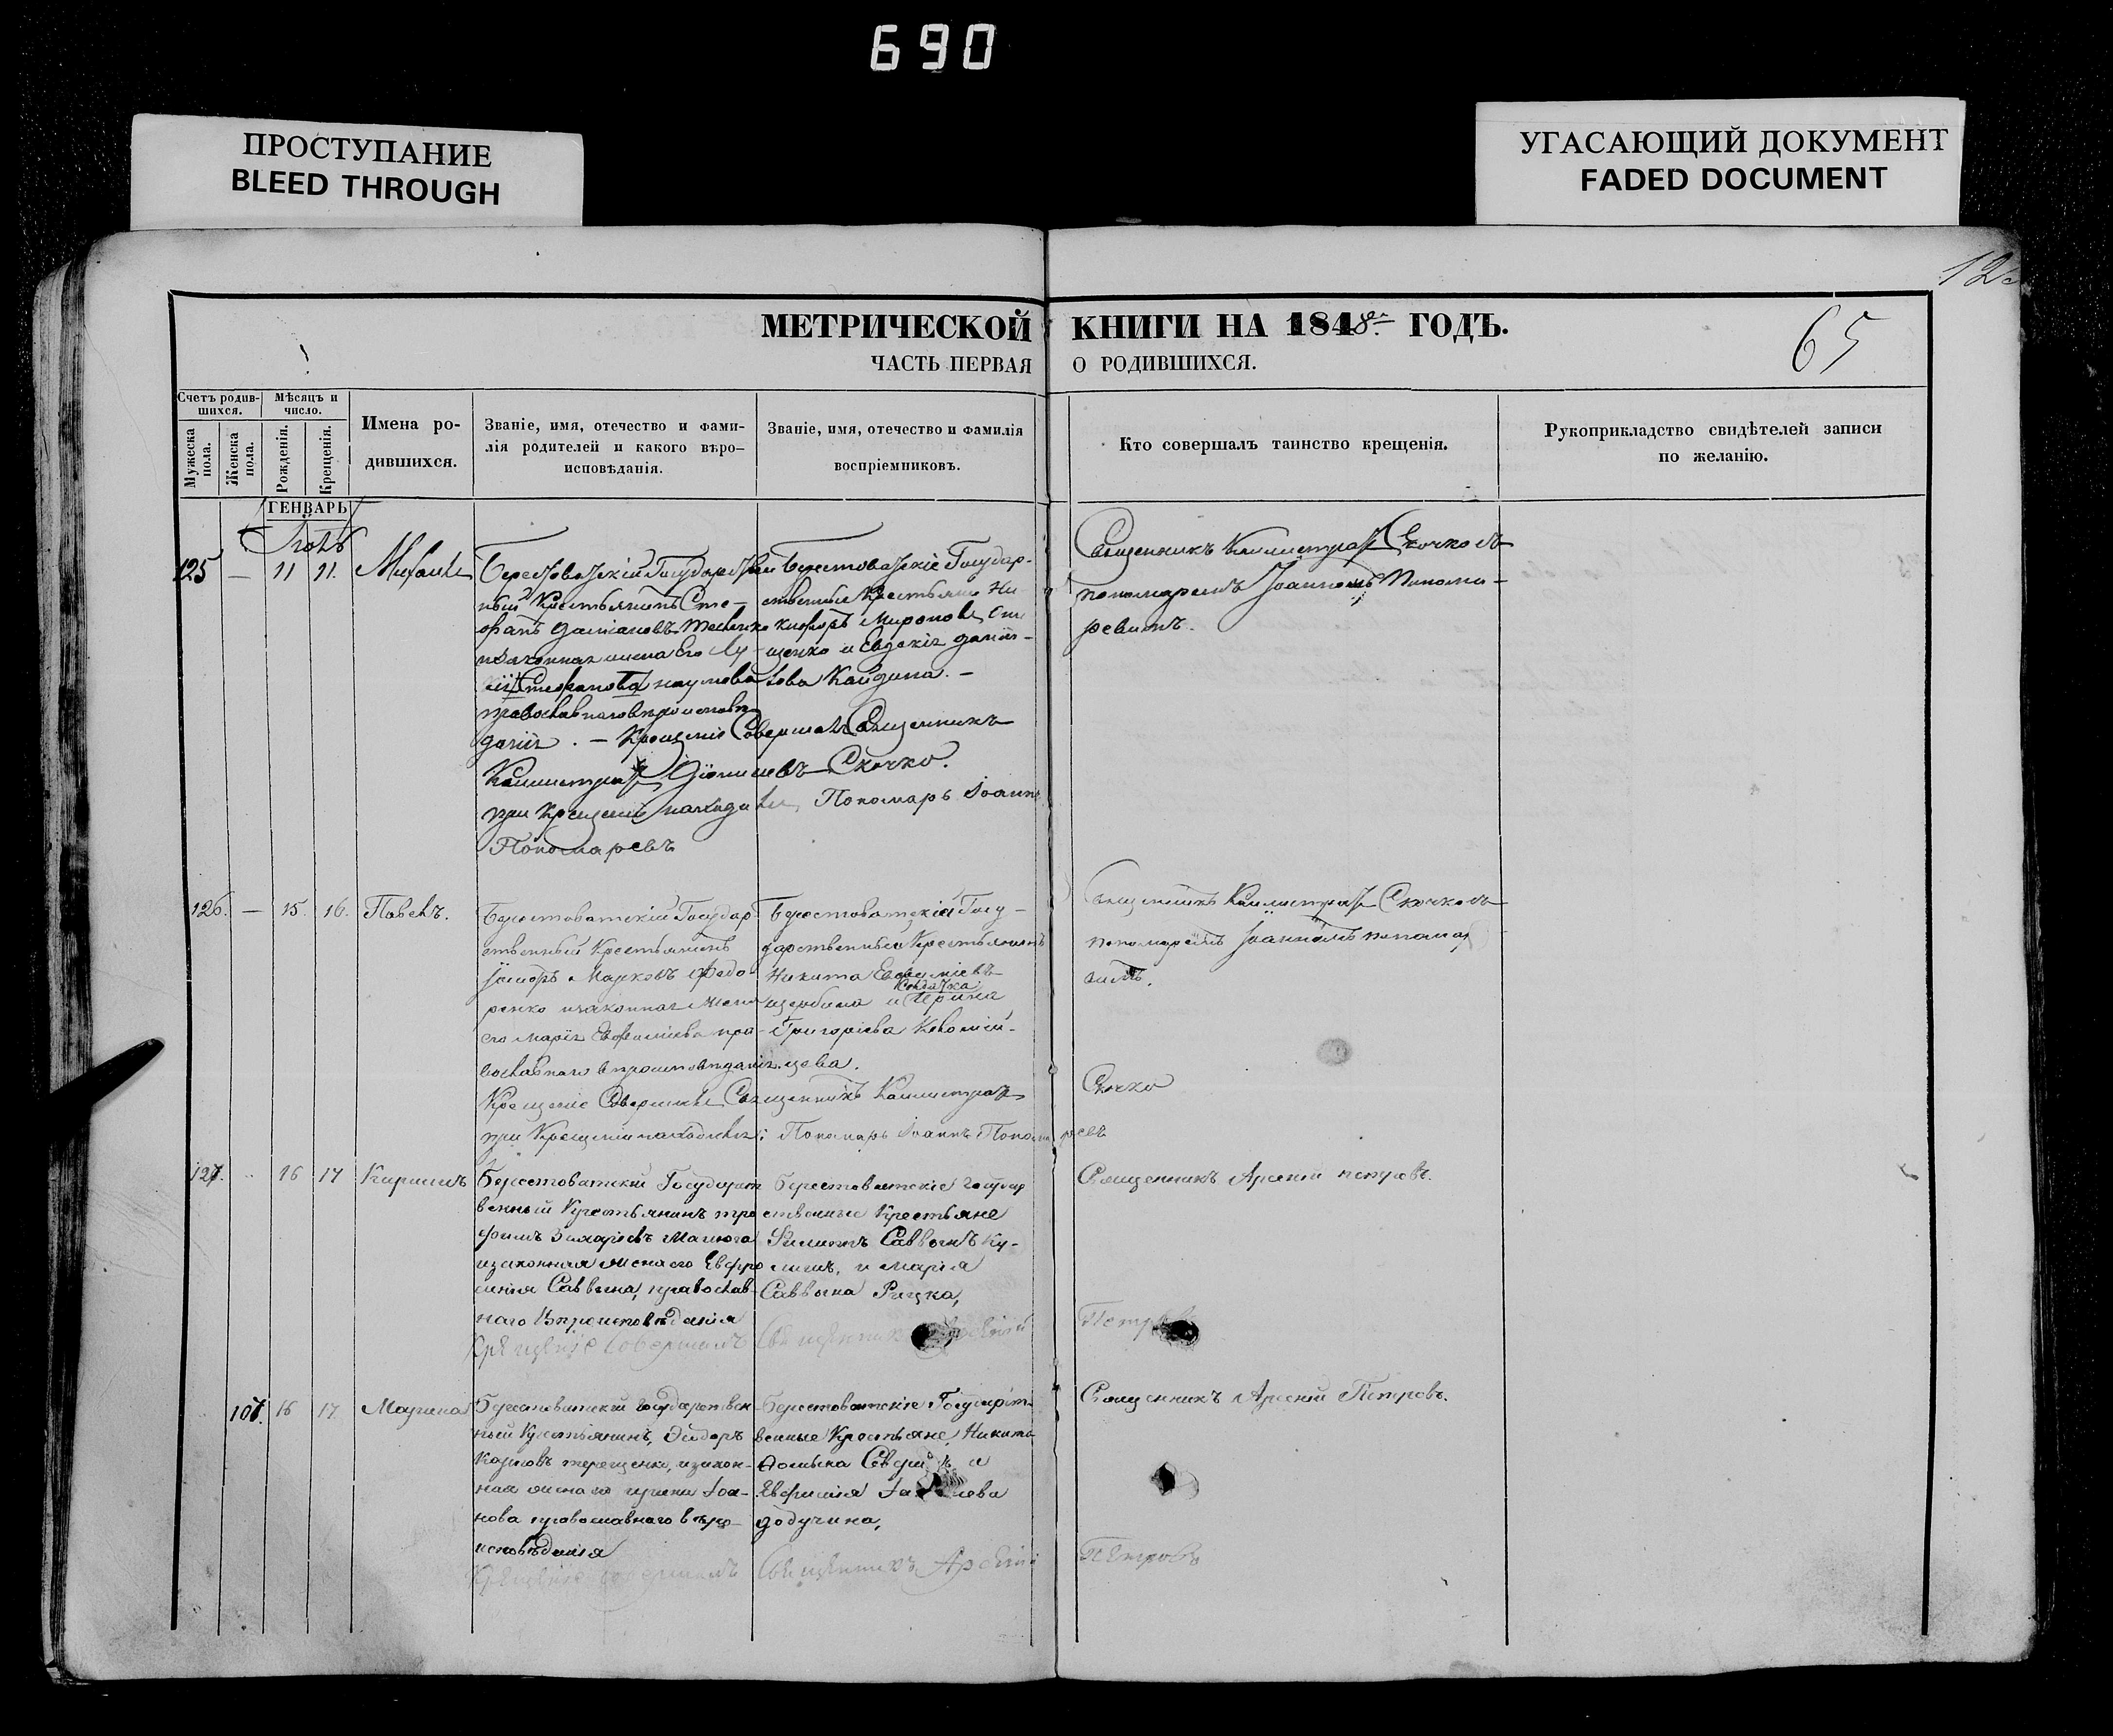 690
ПРОСТУПАНИЕ
BLEED THROUGH
УГАСАЮЩИЙ ДОКУМЕНТ
FADED DOCUMENT
МЕТРИЧЕСКОЙ КНИГИ НА 1848 ГОДЪ.
65
ЧАСТЬ ПЕРВАЯ О РОДИВШИХСЯ.
Счетъ родив-
шихся.
Мужеска пола.
Женска пола.
Мѣсяцъ и
число.
Рожденія.
Крещенія.
Имена ро-
дившихся.
Званіе, имя, отечество и фами-
лія родителей и какого вѣро-
исповѣданія.
Званіе, имя, отечество и фамилія
воспріемниковъ.
Кто совершалъ таинство крещенія.
Рукоприкладство свидѣтелей записи
по желанію.
ГЕНВАРЬ
125 — 11 11. Михаилъ
Берестоватскій Государствен
ный Крестьянинъ Сте-
фанъ Даміановъ
изаконная жена его Лу-
Стефанова Наумова
православнаго вѣроисповѣ
данія. — Крещеніе Совершалъ Священникъ
Каллистратъ Скочко.
при Крещеніи находился Пономарь Іоаннъ
Пономаревъ
Берестоватскіе Государ-
ственные Крестьяне Ни-
кифоръ Мироновъ
щенко и Евдокія Даніи-
лова Кайдина. —
Священникъ Каллистратъ Скочковъ
пономаремъ Іоанномъ Понома-
ревимъ.
126. — 15. 16. Павелъ.
Берестоватскій Государ
ственный Крестьянинъ
Марковъ Федо
ренко изаконная жена
его Марія Евфиміева пра-
вославнаго вѣроисповѣданія.
Крещеніе Совершалъ Священникъ Каллистратъ Скочко
при Крещеніи находился: Пономарь Іоаннъ Пономаревъ
Берестоватскіе Госу-
дарственный Крестьянинъ
Никита Евфиміевъ
щербина и Ирина
Григоріева Коломій-
цева.
Священникъ Каллистратъ Скочковъ
пономаремъ Іоанномъ
127. 16 17 Кириллъ
Берестоватскій Государст
венный Крестьянинъ тро
фимъ Захаріевъ Манюга
изаконная жена его Евфро
синія Саввына, православ-
наго Вѣроисповѣданія
Крещеніе Совершалъ Священникъ Арсеній Петровъ
Берестоватскіе Государ
ственные Крестьяне
Филиппъ Саввынъ Ку-
лишъ, и Марія
Саввына Рицка,
Священникъ Арсеній петровъ.
107. 16 17 Марина
Берестоватскій Государствен
ный Крестьянинъ,
Карповъ терещенко, изакон-
ная жена его ирина Іоа-
нова православнаго вѣро-
исповѣданія
Крещеніе Совершалъ Священникъ Арсеній Петровъ
Берестоватскіе Государст
венные Крестьяне, Никита
Евфимія
додучина,
Священникъ Арсеній Петровъ.